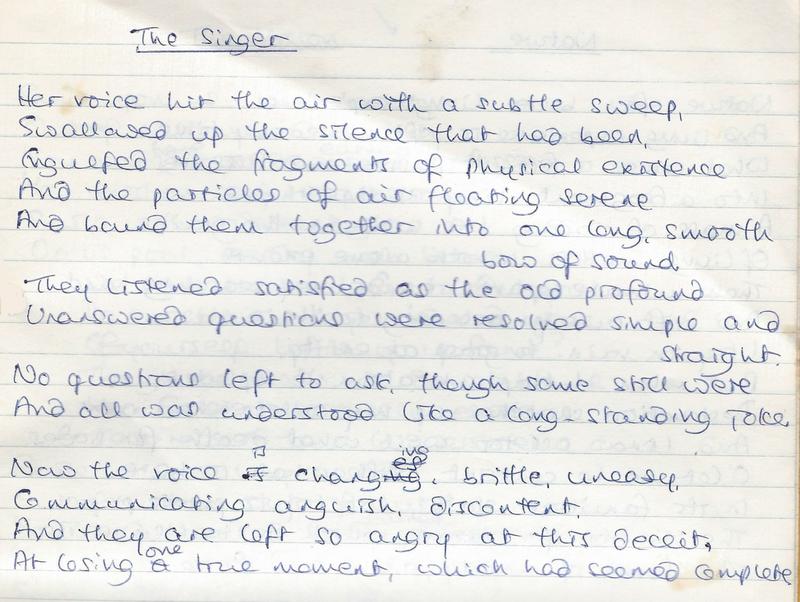 The Singer
Her voice hit the air with a subtle sweep,
Swallowed up the silence that had been,
Engulfed the fragments of physical existence
And the particles of air floating serene
And bound them together into one long, smooth
bow of sound.
They listened satisfied as the old profound
Unanswered questions were resolved simple and
straight.
No questions left to ask, though some still were
And all was understood like a long-standing joke.
Now the voice is changing, brittle, uneasy,
Communicating anguish, discontent,
And they are left so angry at this deceit,
At losing one true moment, which had seemed complete